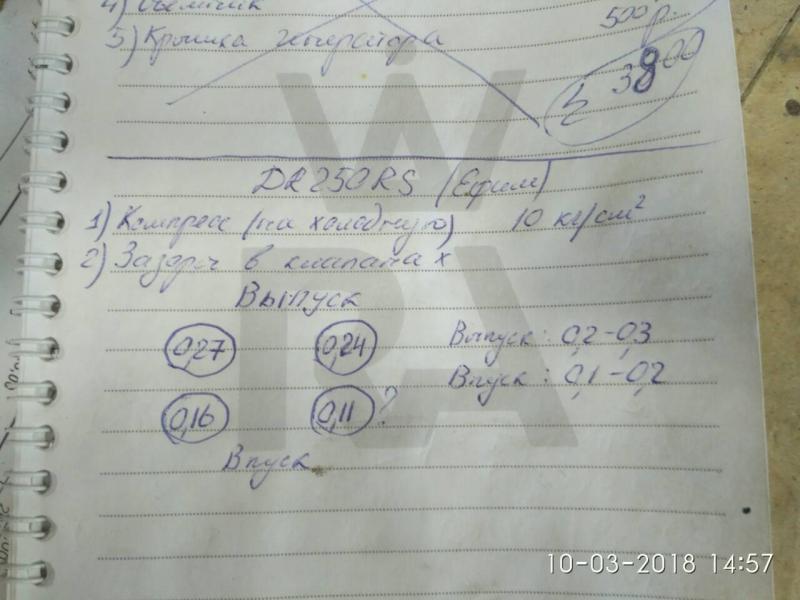 4) Съёмник 500 р.
5) Крышка генератора
Σ 3800
DR250RS (Ефим)
1) Компресс (на холодную) 10 кг/см²
2) Зазоры в клапанах
Выпуск
0,27 0,24 Выпуск: 0,2-0,3
Впуск: 0,1-0,2
0,16 0,11 ?
Впуск
WRA
10-03-2018 14:57